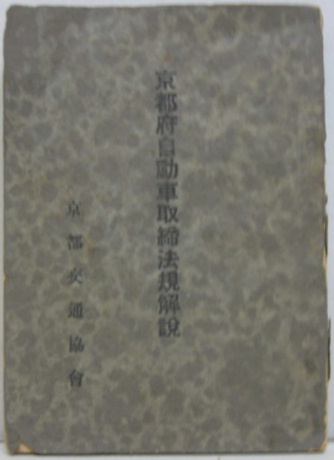 京都府自動車取締法規解説
京都交通協會